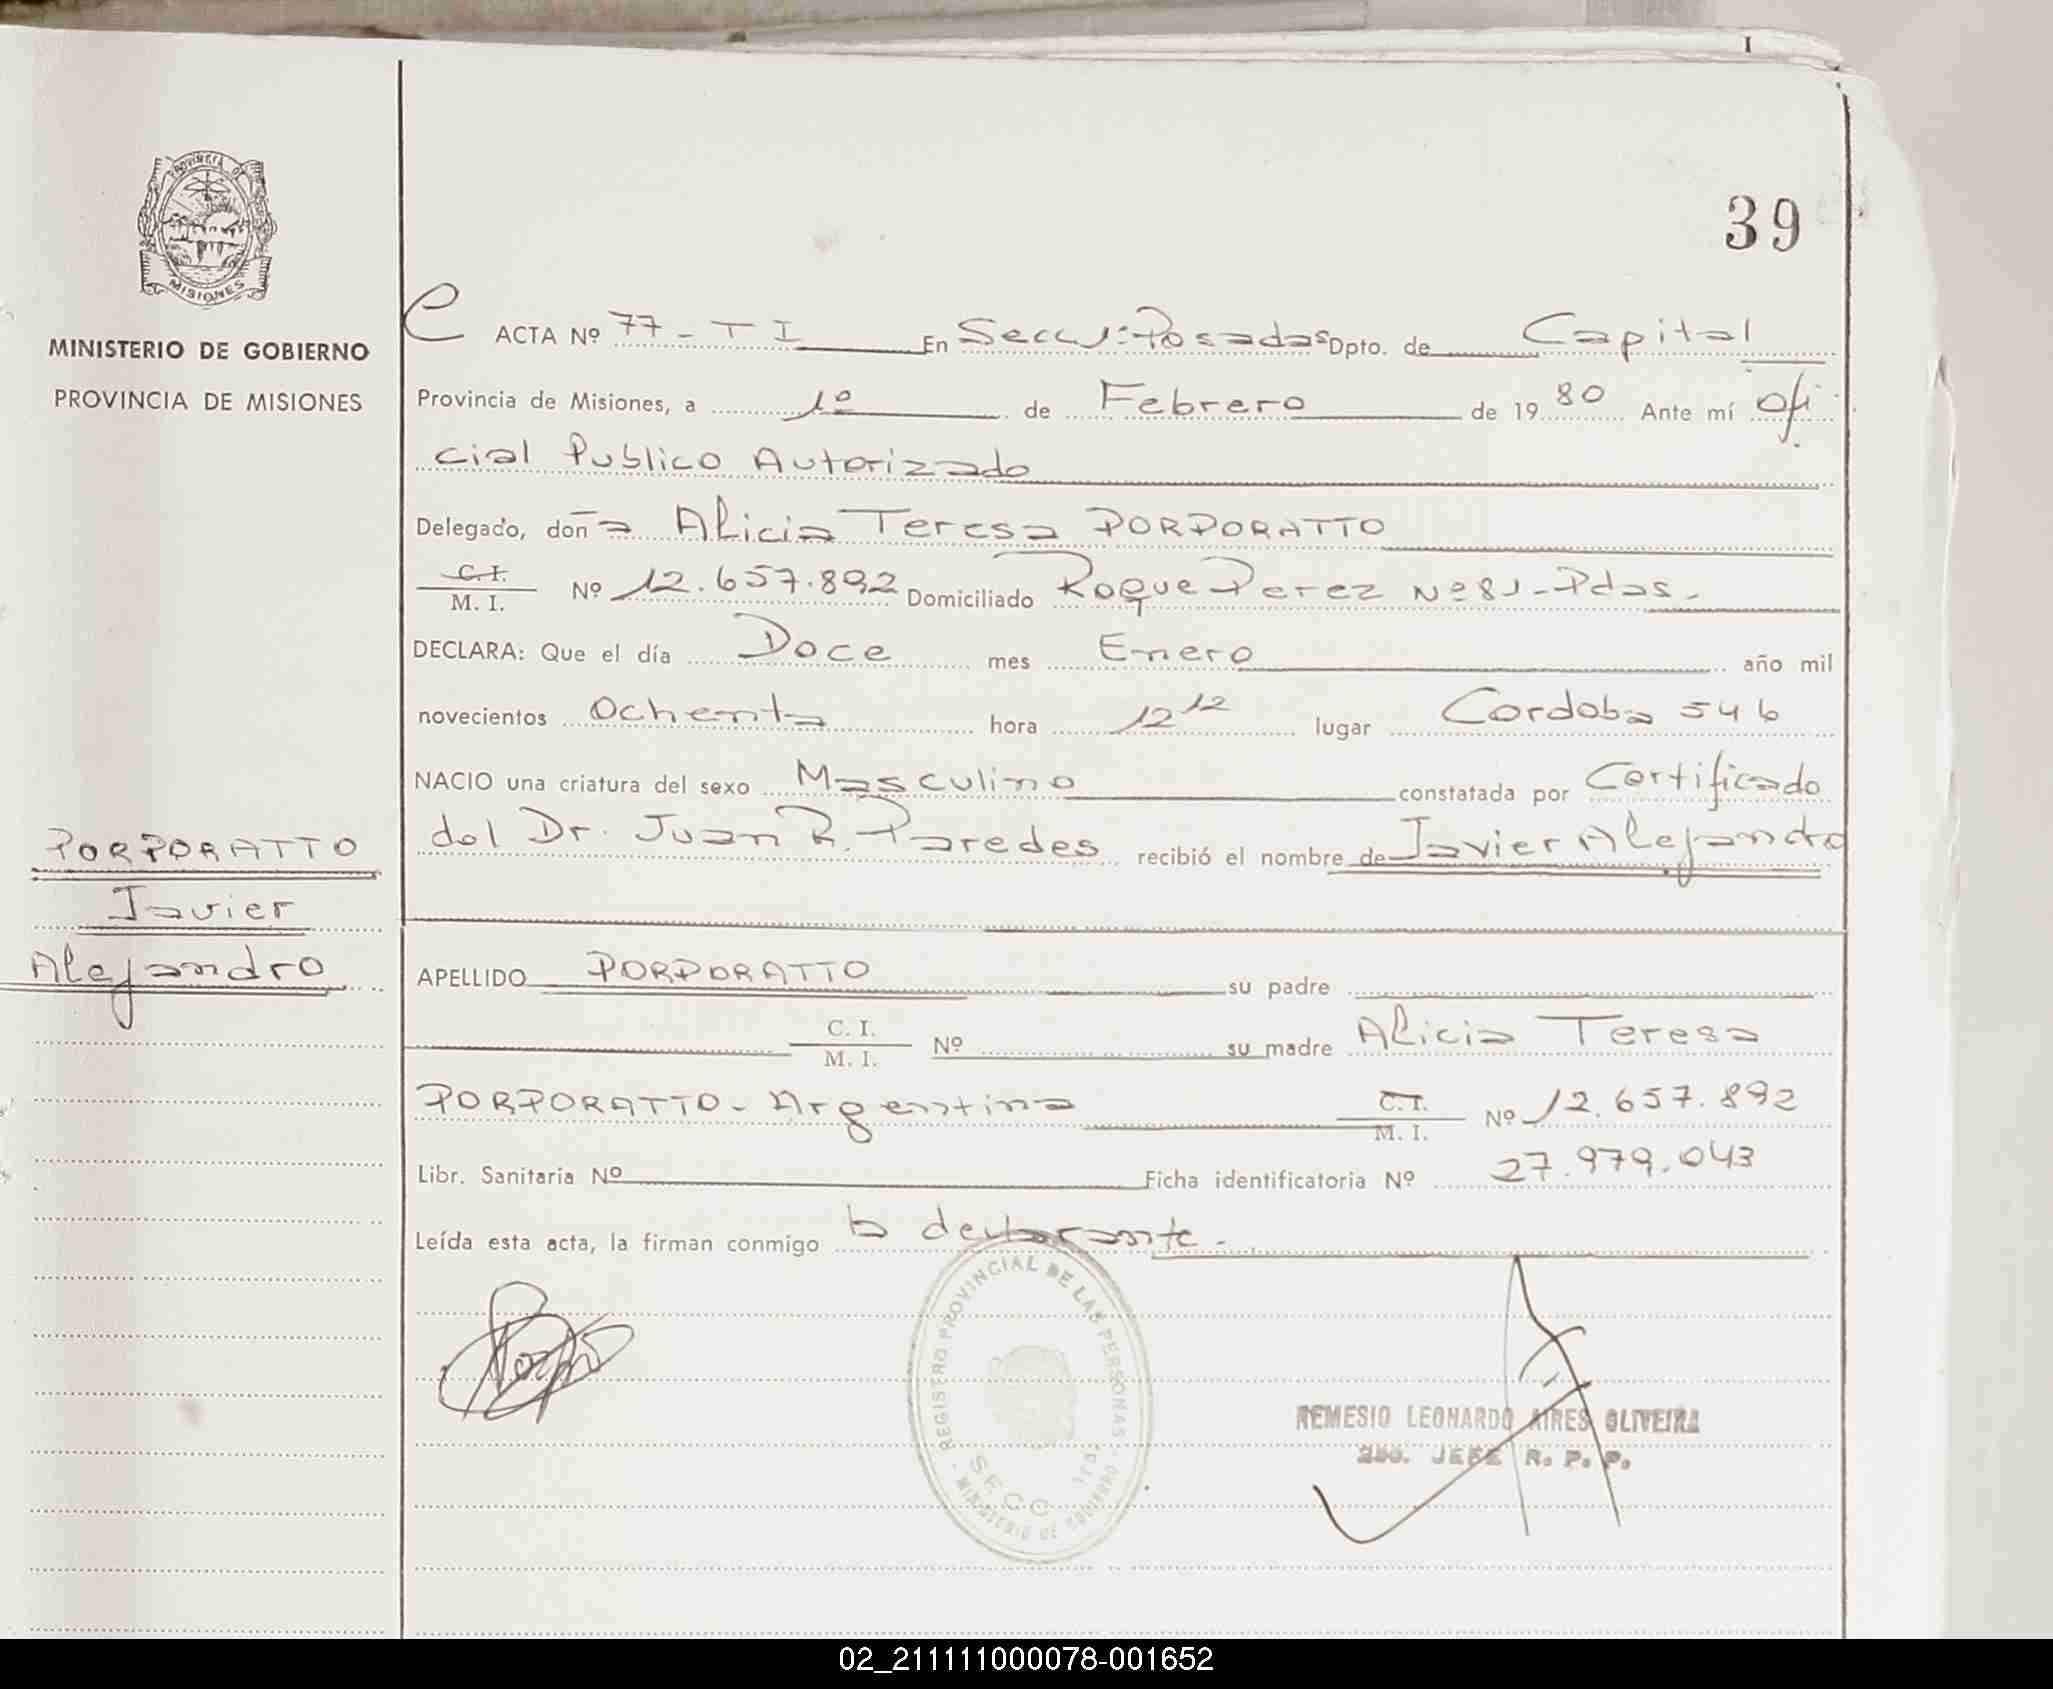 I
39
PROVINCIA DE
MISIONES
MINISTERIO DE GOBIERNO
PROVINCIA DE MISIONES
ACTA Nº 77 - T I En Secc 1: Posadas Dpto. de Capital
Provincia de Misiones, a 1º de Febrero de 19 80 Ante mí Ofi
cial Publico Autorizado
Delegado, doña Alicia Teresa PORPORATTO
C.I.
M. I. Nº 12.657.892 Domiciliado Roque Perez Nº 81 - Pdas.
DECLARA: Que el día Doce mes Enero año mil
novecientos Ochenta hora 12 12 lugar Cordoba 546
NACIO una criatura del sexo Masculino constatada por Certificado
del Dr. Juan R. Paredes recibió el nombre de Javier Alejandro
PORPORATTO
Javier
Alejandro
APELLIDO PORPORATTO su padre
C. I.
M. I. Nº su madre Alicia Teresa
PORPORATTO - Argentina C.I.
M. I. Nº 12.657.892
Libr. Sanitaria Nº Ficha identificatoria Nº 27.979.043
Leída esta acta, la firman conmigo la declarante -
REGISTRO PROVINCIAL DE LAS PERSONAS
MINISTERIO DE GOBIERNO
SECC
REMESIO LEONARDO AIRES OLIVEIRA
2do. JEFE R. P. P.
02_211111000078-001652